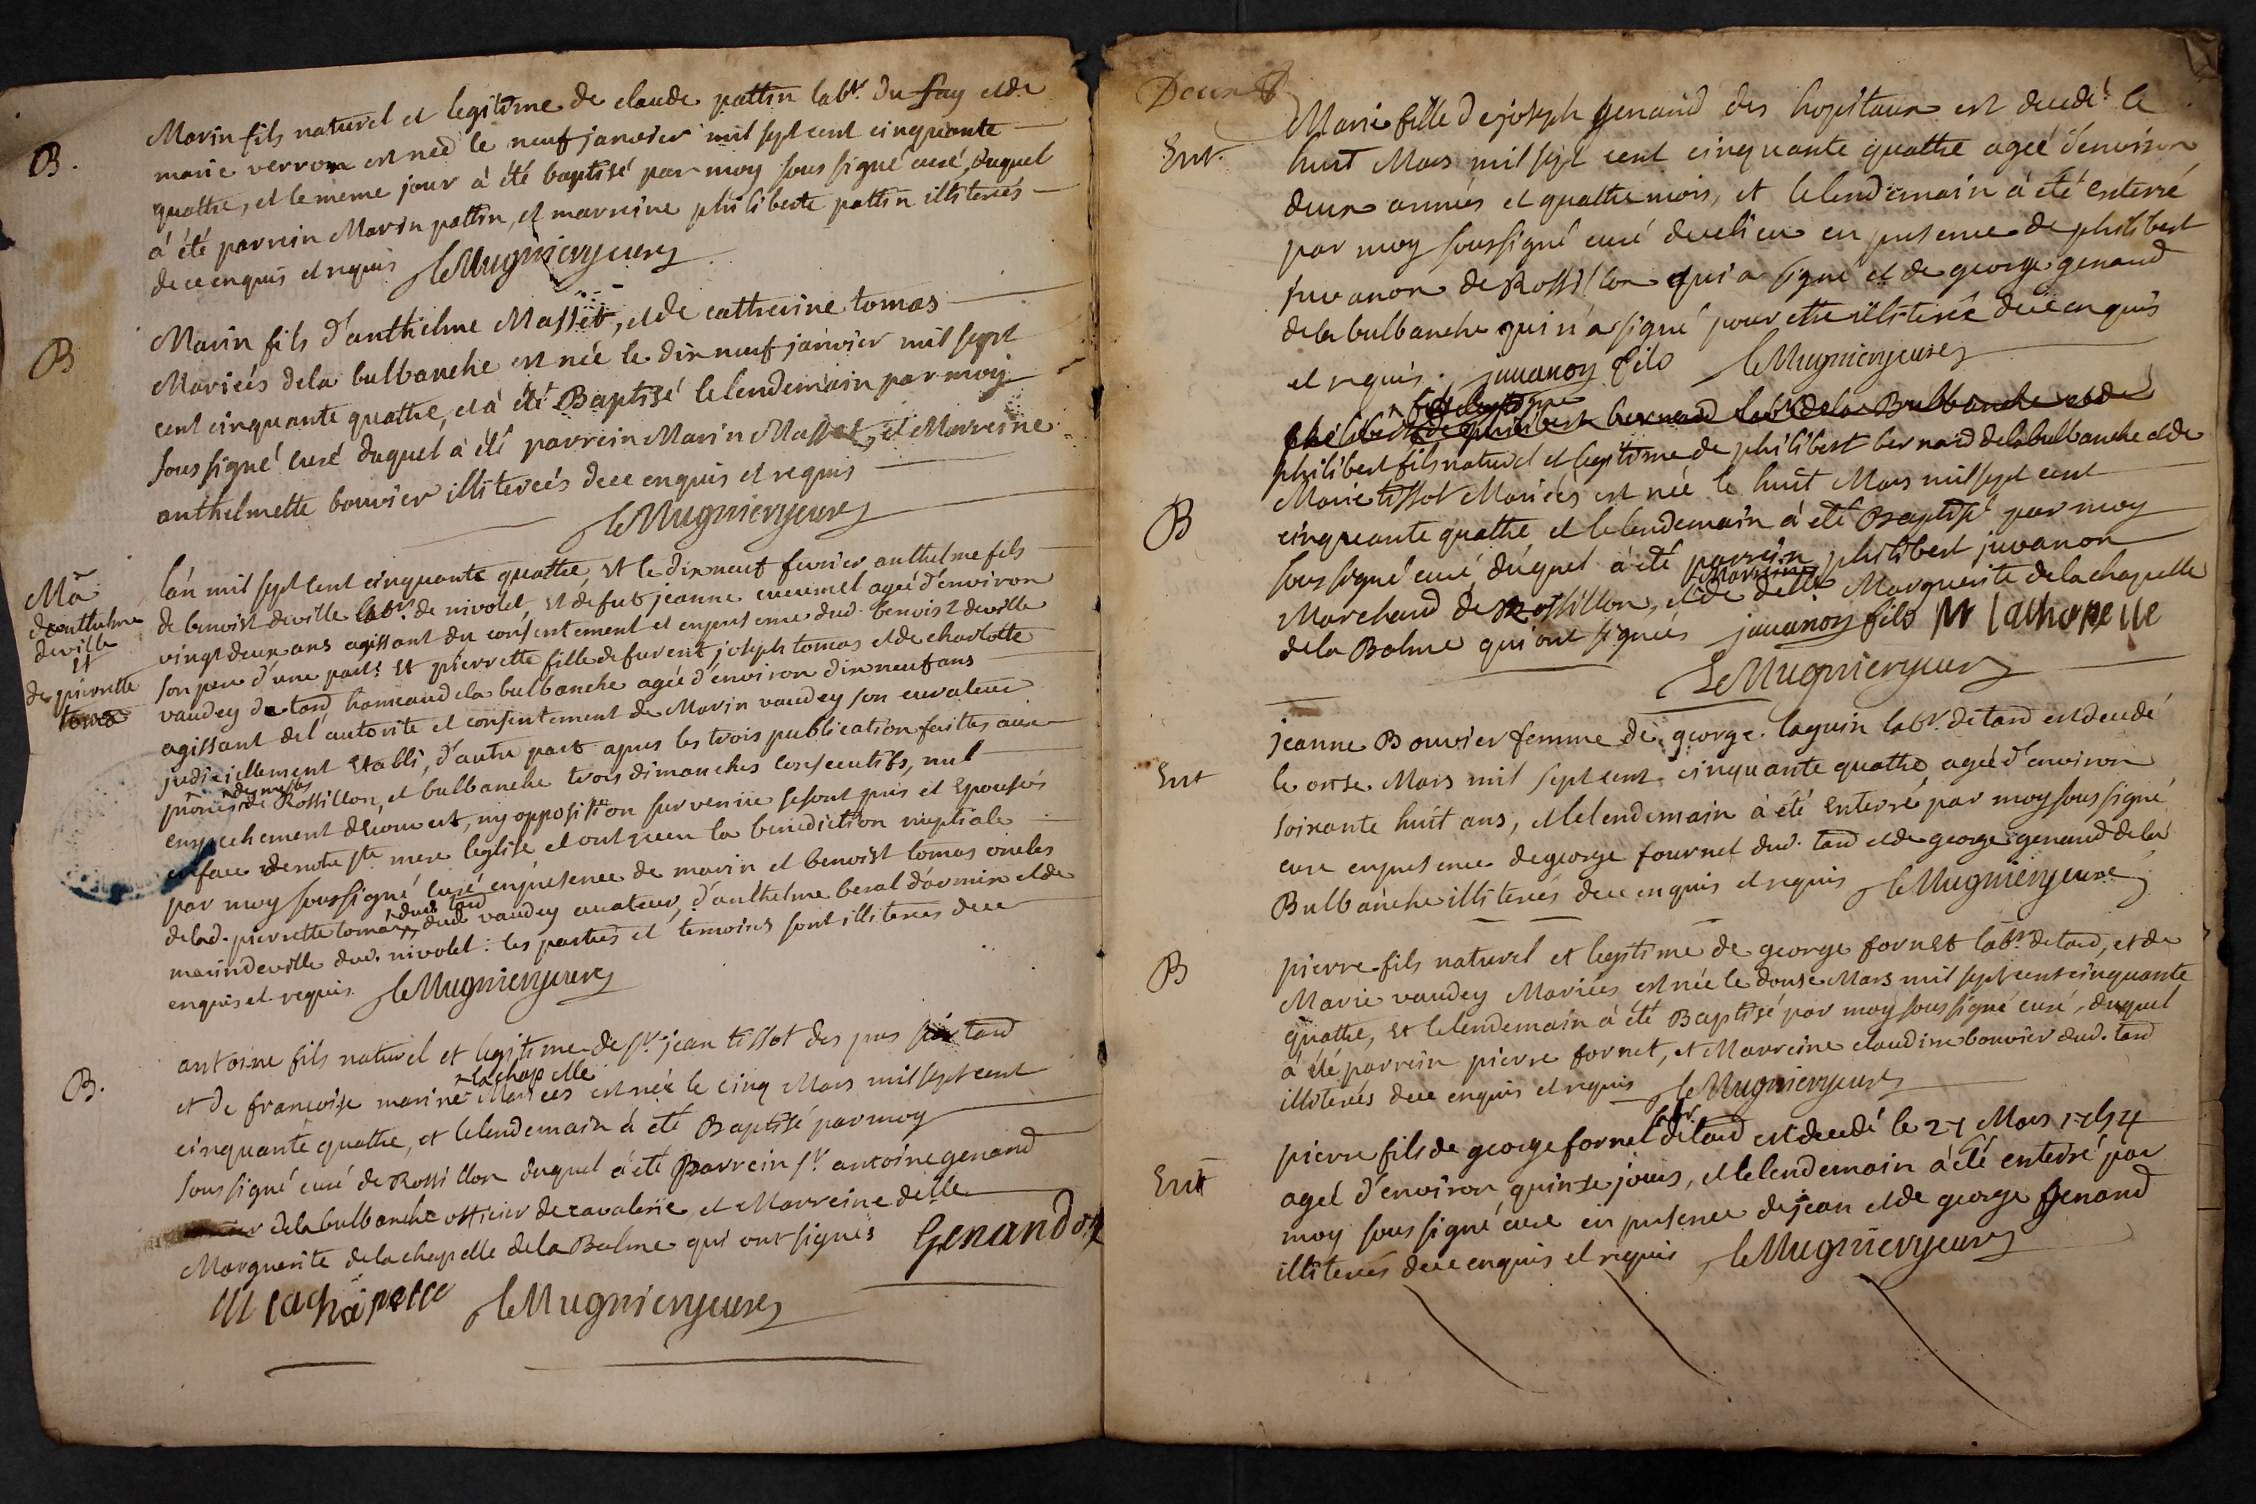 B.
Marin fils naturel et legitime de claude pattin labr. du fay et de
marie verron est neé le neuf janvier mil sept cent cinquante
quattre, et le meme jour à été baptisé par moy sous signé curé, duquel
à été parrein Marin pattin, et marreine philiberte pattin illiterés
de ce enquis et requis LeMugnier curé
B
Marin fils d'anthelme Masset, et de catherine tomas
Mariés de la bulbanche est née le dix neuf janvier mil sept
cent cinquante quattre, et à été Baptisé le lendemain par moy
sous signé curé duquel à été parrein Marin Masset, et Marreine
anthelmette bouvier illitereés de ce enquis et requis
LeMugnier curé
Ma
d'anthelme
deville
et
de pierrette
tomas
l'an mil sept cent cinquante quattre, et le dix neuf fevrier anthelme fils
de benoist deville labr. de nivolet, et de fut jeanne cucumel ageé d'environ
vingt deux ans agissant du consentement et en presence dud. benoist deville
son pere d'une part: et pierrette fille de furent joseph tomas et de charlotte
vaudey de tard hameau de la bulbanche ageé d'environ dix neuf ans
agissant de l'autorité et consentement de Marin vaudey son curateur
judiciellement etabli, d'autre part apres les trois publication faittes aux
prônes des messes de Rossillon, et bulbanche trois dimanches consecutifs, nul
empechement découvert, ny opposition survenüe se sont pris et Epousés
en face de notre ste mere l'eglise et ont recu la benediction nuptiale
par moy soussigné curé en presence de marin et benoist tomas oncles
de lad. pierrette tomas dud. tard dud. vaudey curateur, d'anthelme beral d'armix et de
marin deville dud. nivolet: les parties et temoins sont illiterés de ce
enquis et requis LeMugnier curé
B.
antoine fils naturel et legitime de sr. jean tissot des pres tard
et de francoise marine lachapelle Mariees est née le cinq Mars mil sept cent
cinquante quattre, et le lendemain à été Baptisé par moy
sous signé curé de Rossillon duquel à été Parrein sr. antoine genand
de la bulbanche officier de cavalerie et Marreine delle
Marguerite de la chapelle de la Balme qui ont signés Genandoz
M lachapelle LeMugnier curé
Deux
Ent.
Marie fille de joseph genand des hopitaux est decedé le
huit Mars mil sept cent cinquante quattre ageé d'environ
deux années et quattre mois, et le lendemain à été enterré
par moy soussigné curé du lieu en presence de philibert
juvanon de Rossillon qui a signé et de george genand
de la bulbanche qui n'a signé pour etre illiteré de ce enquis
et requis. juuanon fils LeMugnier curé
philibert fils legitime de philibert bernard labr. de la Bulbanche et de
B
philibert fils naturel et legitime de philibert bernard de la bulbanche et de
Marie tissot Mariées est née le huit Mars mil sept cent
cinquante quattre et le lendemain à été Baptisé par moy
sous signé curé, duquel à été parrein philibert juvanon
Marchand de Rossillon, et de marreine delle Marguerite de la chapelle
de la Balme qui ont signés juuanon fils M lachapelle
LeMugnier curé
Ent
jeanne Bouvier femme de george laguin labr. de tard est decedé
le onse Mars mil sept cent cinquante quattre ageé d'environ
soixante huit ans, et le lendemain à été enterré par moy sous signé
cure en presence de george fournet dud. tard et de george genand de la
Bulbanche illiterés de ce enquis et requis LeMugnier curé
B
pierre fils naturel et legitime de george fornet labr. de tard, et de
Marie vaudey Mariés est née le douse Mars mil sept cent cinquante
quattre, et le lendemain à été Baptisé par moy sous signé curé, duquel
à été parrein pierre fornet, et Marreine claudine bouvier dud. tard
illiterés de ce enquis et requis LeMugnier curé
Ent
pierre fils de george fornet labr de tard est decedé le 27 Mars 1754
ageé d'environ quinse jours, et le lendemain à été enterré par
moy sous signé cure en presence de jean et de george genand
illiterés de ce enquis et requis LeMugnier curé